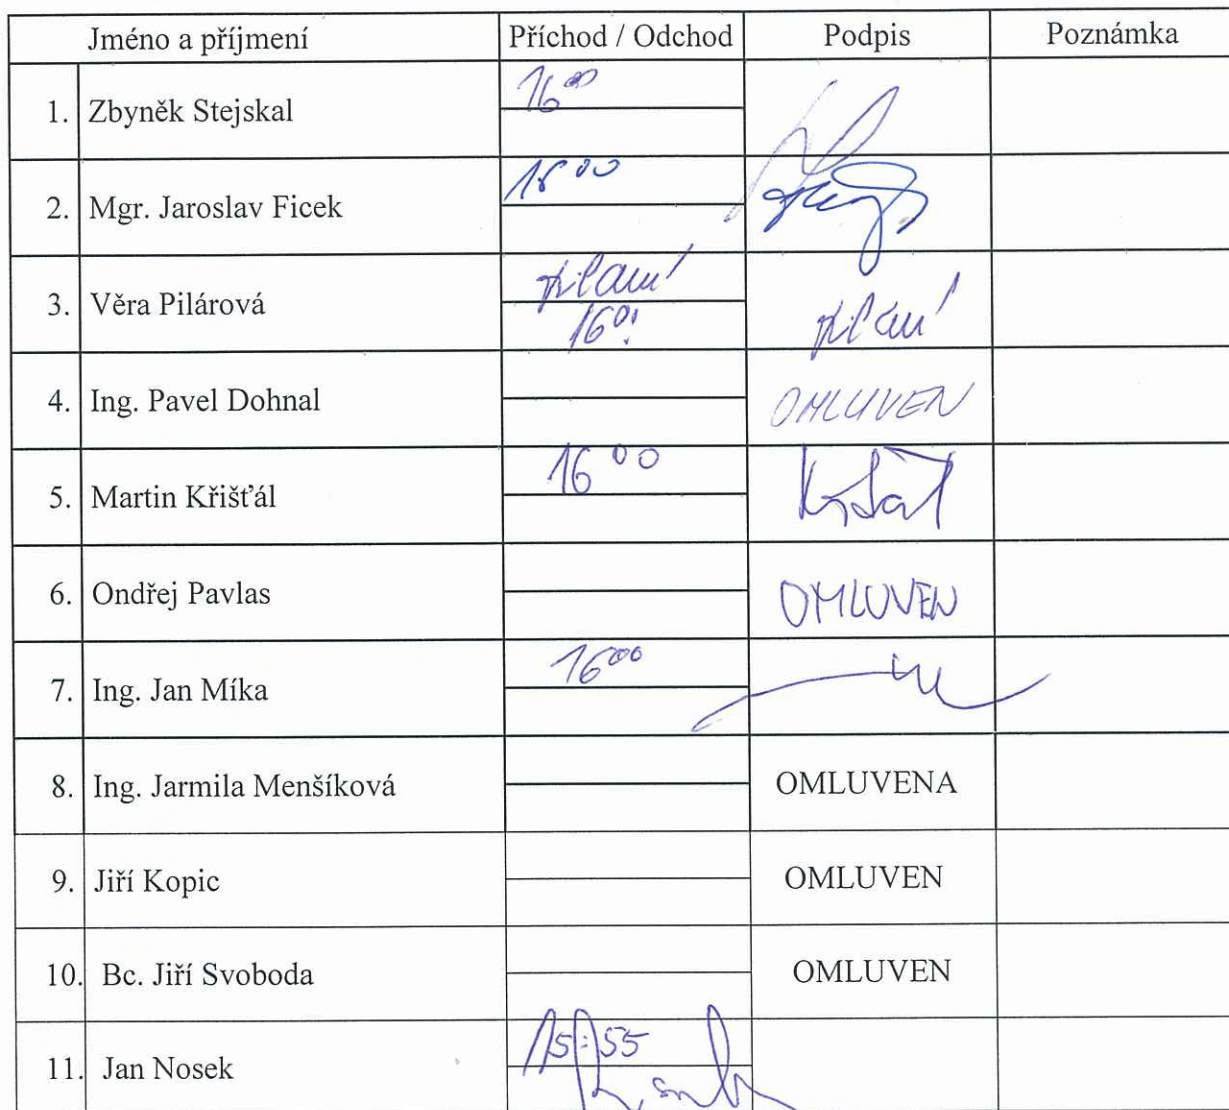 Jméno a příjmení Příchod / Odchod Podpis Poznámka
1. Zbyněk Stejskal 16 00
2. Mgr. Jaroslav Ficek 16 00
3. Věra Pilárová
16 00
4. Ing. Pavel Dohnal OMLUVEN
5. Martin Křišťál 16 00
6. Ondřej Pavlas OMLUVEN
7. Ing. Jan Míka 16 00
8. Ing. Jarmila Menšíková OMLUVENA
9. Jiří Kopic OMLUVEN
10. Bc. Jiří Svoboda OMLUVEN
11. Jan Nosek 15:55